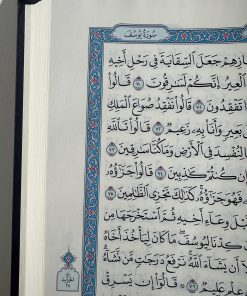 سُورَةُ يُوسُفَ
ازِهِمْ جَعَلَ ٱلسِّقَايَةَ فِي رَحْلِ أَخِيهِ
ٱلْعِيرُ إِنَّكُمْ لَسَٰرِقُونَ ٧٠ قَالُوا۟
تَفْقِدُونَ ٧١ قَالُوا۟ نَفْقِدُ صُوَاعَ ٱلْمَلِكِ
بَعِيرٍ وَأَنَا۠ بِهِۦ زَعِيمٌ ٧٢ قَالُوا۟ تَٱللَّهِ
لِنُفْسِدَ فِي ٱلْأَرْضِ وَمَا كُنَّا سَٰرِقِينَ ٧٣
إِن كُنتُمْ كَٰذِبِينَ ٧٤ قَالُوا۟ جَزَٰٓؤُهُۥ
فَهُوَ جَزَٰٓؤُهُۥ ۚ كَذَٰلِكَ نَجْزِي ٱلظَّٰلِمِينَ ٧٥
قَبْلَ وِعَآءِ أَخِيهِ ثُمَّ ٱسْتَخْرَجَهَا مِن
كِدْنَا لِيُوسُفَ ۖ مَا كَانَ لِيَأْخُذَ أَخَاهُ
أَن يَشَآءَ ٱللَّهُ ۚ نَرْفَعُ دَرَجَٰتٍ مَّن نَّشَآءُ ۗ
عِلْمٍ عَلِيمٌ ٧٦ قَالُوٓا۟ إِن يَسْرِقْ